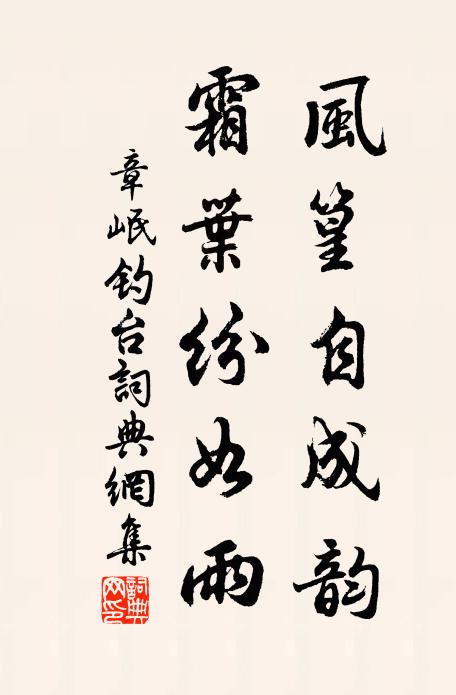 風篁自成韵
霜葉紛如雨
章岷钓台詞典網集
詞典网印